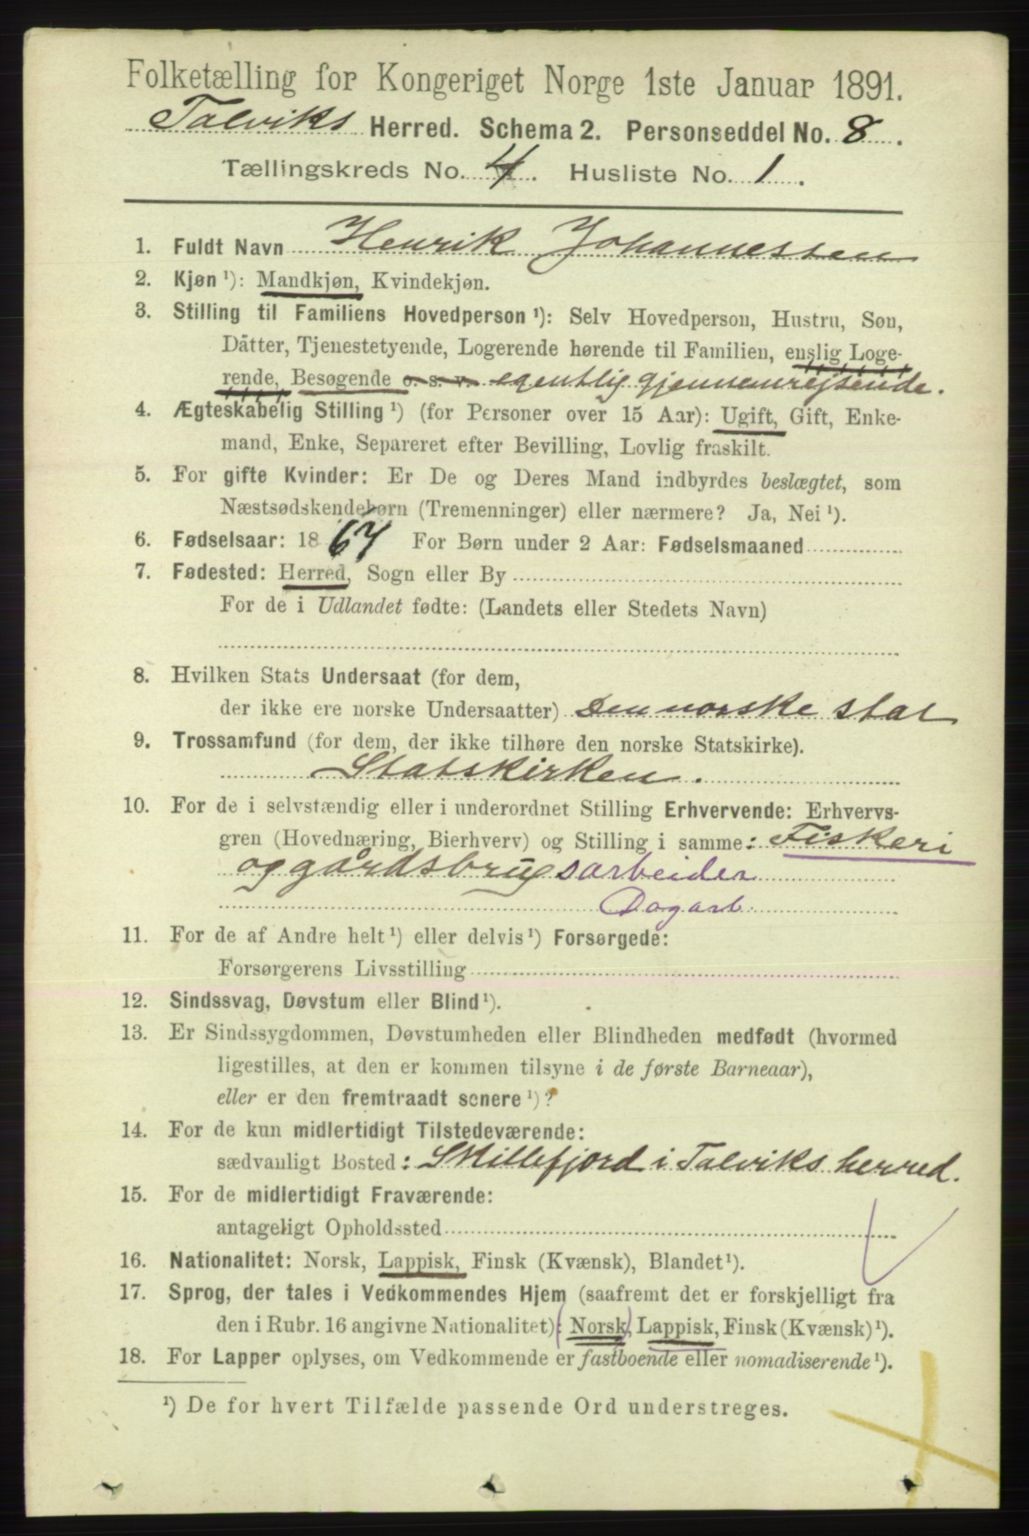 Folketælling for Kongeriget Norge 1ste Januar 1891.
Talviks Herred. Schema 2. Personseddel No. 8.
Tællingskreds No. 4. Husliste No. 1.
1. Fuldt Navn Henrik Johannessen
2. Kjøn ¹): Mandkjøn, Kvindekjøn.
3. Stilling til Familiens Hovedperson ¹): Selv Hovedperson, Hustru, Søn,
Datter, Tjenestetyende, Logerende hørende til Familien, enslig Loge-
rende, Besøgende o. s. v. egentlig gjennemrejsende.
4. Ægteskabelig Stilling ¹) (for Personer over 15 Aar): Ugift, Gift, Enke-
mand, Enke, Separeret efter Bevilling, Lovlig fraskilt.
5. For gifte Kvinder: Er De og Deres Mand indbyrdes beslægtet, som
Næstsødskendebørn (Tremenninger) eller nærmere? Ja, Nei ¹).
6. Fødselsaar: 1867 For Børn under 2 Aar: Fødselsmaaned
7. Fødested: Herred, Sogn eller By
For de i Udlandet fødte: (Landets eller Stedets Navn)
8. Hvilken Stats Undersaat (for dem,
der ikke ere norske Undersaatter) Den norske stat
9. Trossamfund (for dem, der ikke tilhøre den norske Statskirke).
Statskirken.
10. For de i selvstændig eller i underordnet Stilling Erhvervende: Erhvervs-
gren (Hovednæring, Bierhverv) og Stilling i samme: Fiskeri
og gårdsbrugsarbeider
Dagarb
11. For de af Andre helt ¹) eller delvis ¹) Forsørgede:
Forsørgerens Livsstilling
12. Sindssvag, Døvstum eller Blind ¹).
13. Er Sindssygdommen, Døvstumheden eller Blindheden medfødt (hvormed
ligestilles, at den er kommen tilsyne i de første Barneaar),
eller er den fremtraadt senere ¹)?
14. For de kun midlertidigt Tilstedeværende:
sædvanligt Bosted: Skillefjord i Talviks herred.
15. For de midlertidigt Fraværende:
antageligt Opholdssted
16. Nationalitet: Norsk, Lappisk, Finsk (Kvænsk), Blandet ¹).
17. Sprog, der tales i Vedkommendes Hjem (saafremt det er forskjelligt fra
den i Rubr. 16 angivne Nationalitet): (Norsk), Lappisk, Finsk (Kvænsk) ¹).
18. For Lapper oplyses, om Vedkommende er fastboende eller nomadiserende ¹).
¹) De for hvert Tilfælde passende Ord understreges.